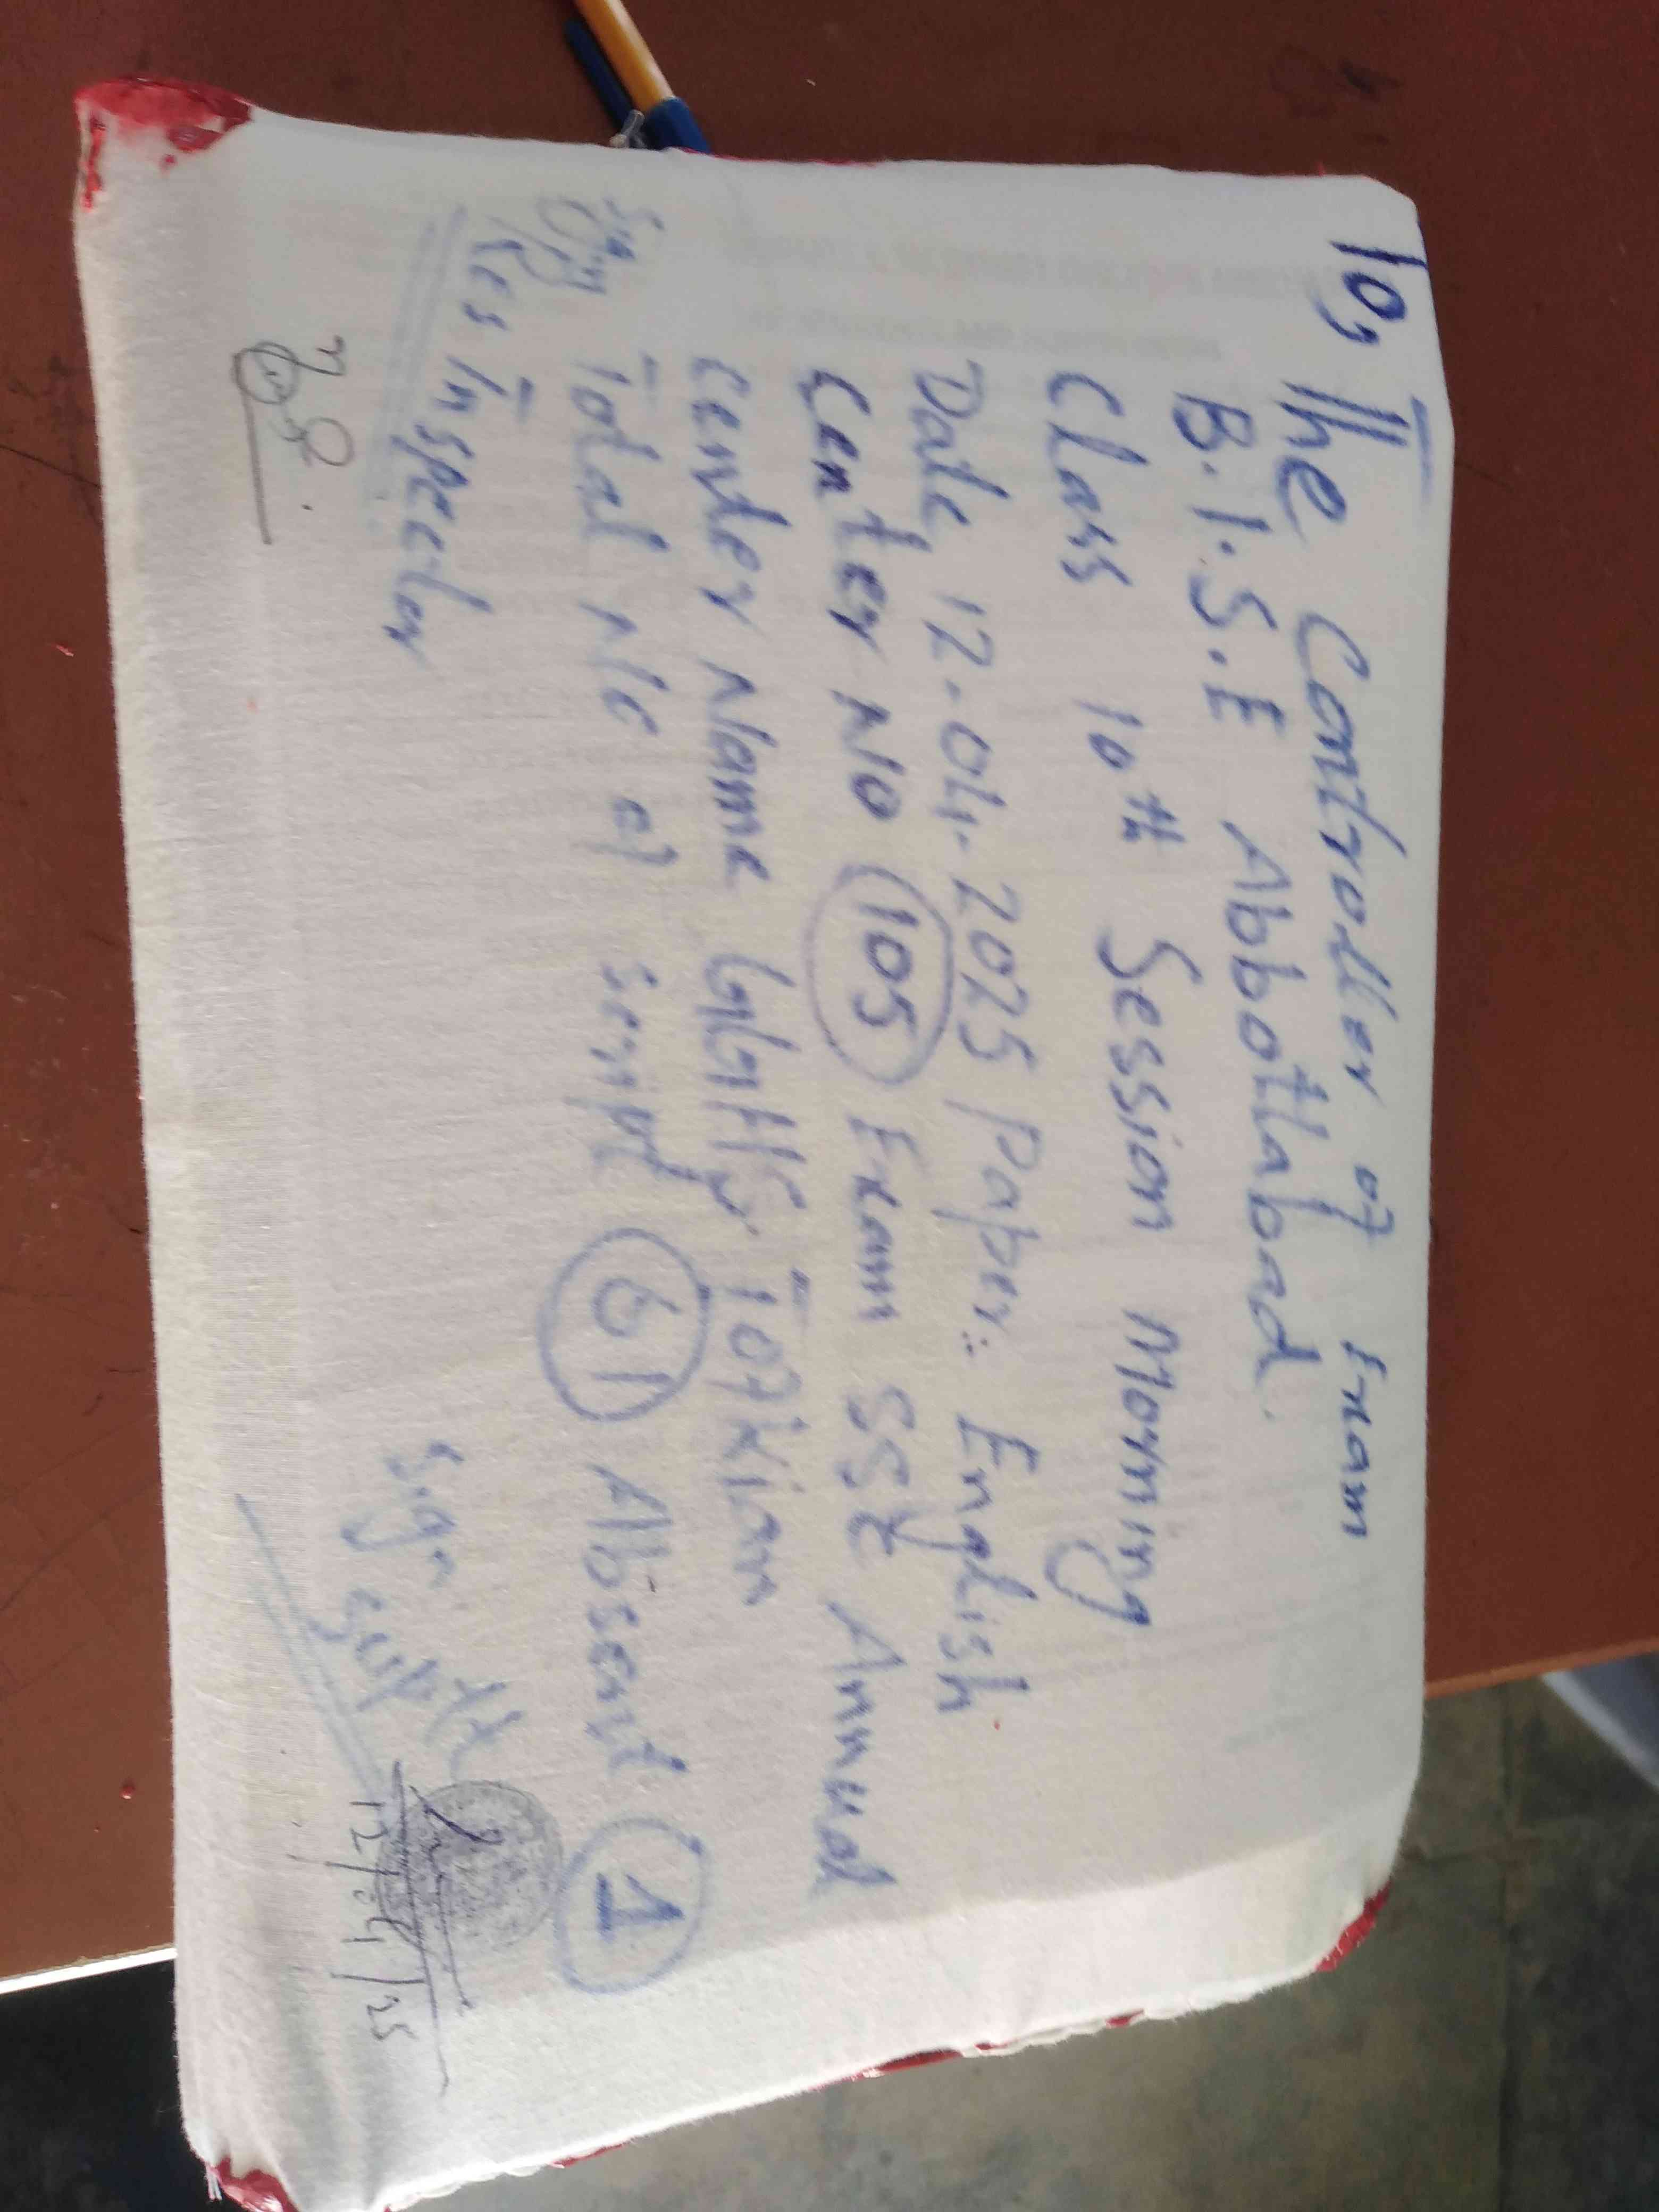 To, The Controller of Exam
B.I.S.E Abbottabad.
Class 10th Session Morning
Date 12-04-2025 Paper: English
Center No 105 Exam SSC Annual
Center Name GGHSS. Tofkian
Total No of script 61 Absent 1
Sign
Res Inspector
Sign Supdt
12/04/25